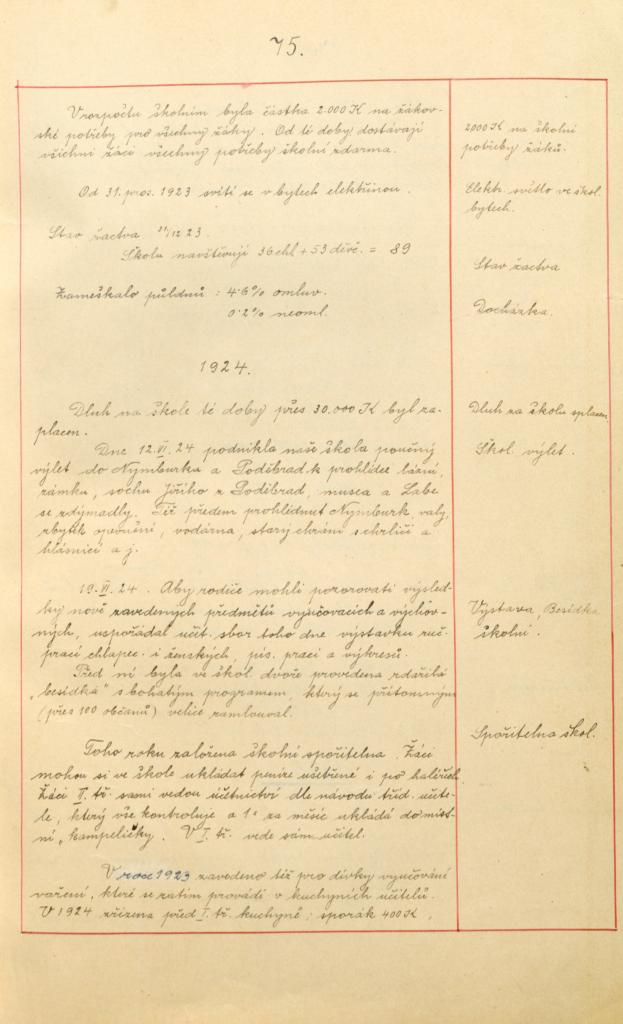 75.
V rozpočtu školním byla částka 2.000 K na žákov-
ské potřeby pro všechny žáky. Od té doby dostávají
všichni žáci všechny potřeby školní zdarma.
2000 K na školní
potřeby žáků.
Od 31. pros. 1923 svítí se v bytech elektřinou.
Elektr. světlo ve škol.
bytech.
Stav žactva 31/12 23.
Školu navštěvují 36 chl + 53 děvč. = 89
Stav žactva
Zameškalo půldnů : 4·6% omluv.
0·2% neoml.
Docházka.
1924.
Dluh na škole té doby přes 30.000 K byl za-
placen.
Dluh za školu splacen
Dne 12. VI. 24 podnikla naše škola poučný
Škol. výlet.
výlet do Nymburka a Poděbrad k prohlídce lázní,
zámku, sochy Jiřího z Poděbrad, musea a Labe
se zdymadly. Též předem prohlédnut Nymburk, valy,
zbytek opevnění, vodárna, starý chrám s chrliči a
hlásnicí a j.
19. VI. 24. Aby rodiče mohli pozorovati výsled-
ky nově zavedených předmětů vyučovacích a výchov-
ných, uspořádal učit. sbor toho dne výstavku ruč.
prací chlapec. i ženských, pís. prací a výkresů.
Výstava, Besídka
školní.
Před ní byla ve škol. dvoře provedena zdařilá
„besídka" s bohatým programem, který se přítomným
(přes 100 občanů) velice zamlouval.
Toho roku založena školní spořitelna. Žáci
Spořitelna škol.
mohou si ve škole ukládat peníze ušetřené i po haléřích.
Žáci II. tř. sami vedou účetnictví dle návodu tříd. učite-
le, který vše kontroluje a 1x za měsíc ukládá do míst-
ní „kampeličky. V I. tř. vede sám učitel.
V roce 1923 zavedeno též pro dívky vyučování
vaření, které se zatím provádí v kuchyních učitelů.
V 1924 zřízena před I. tř. kuchyně; sporák 400 K,